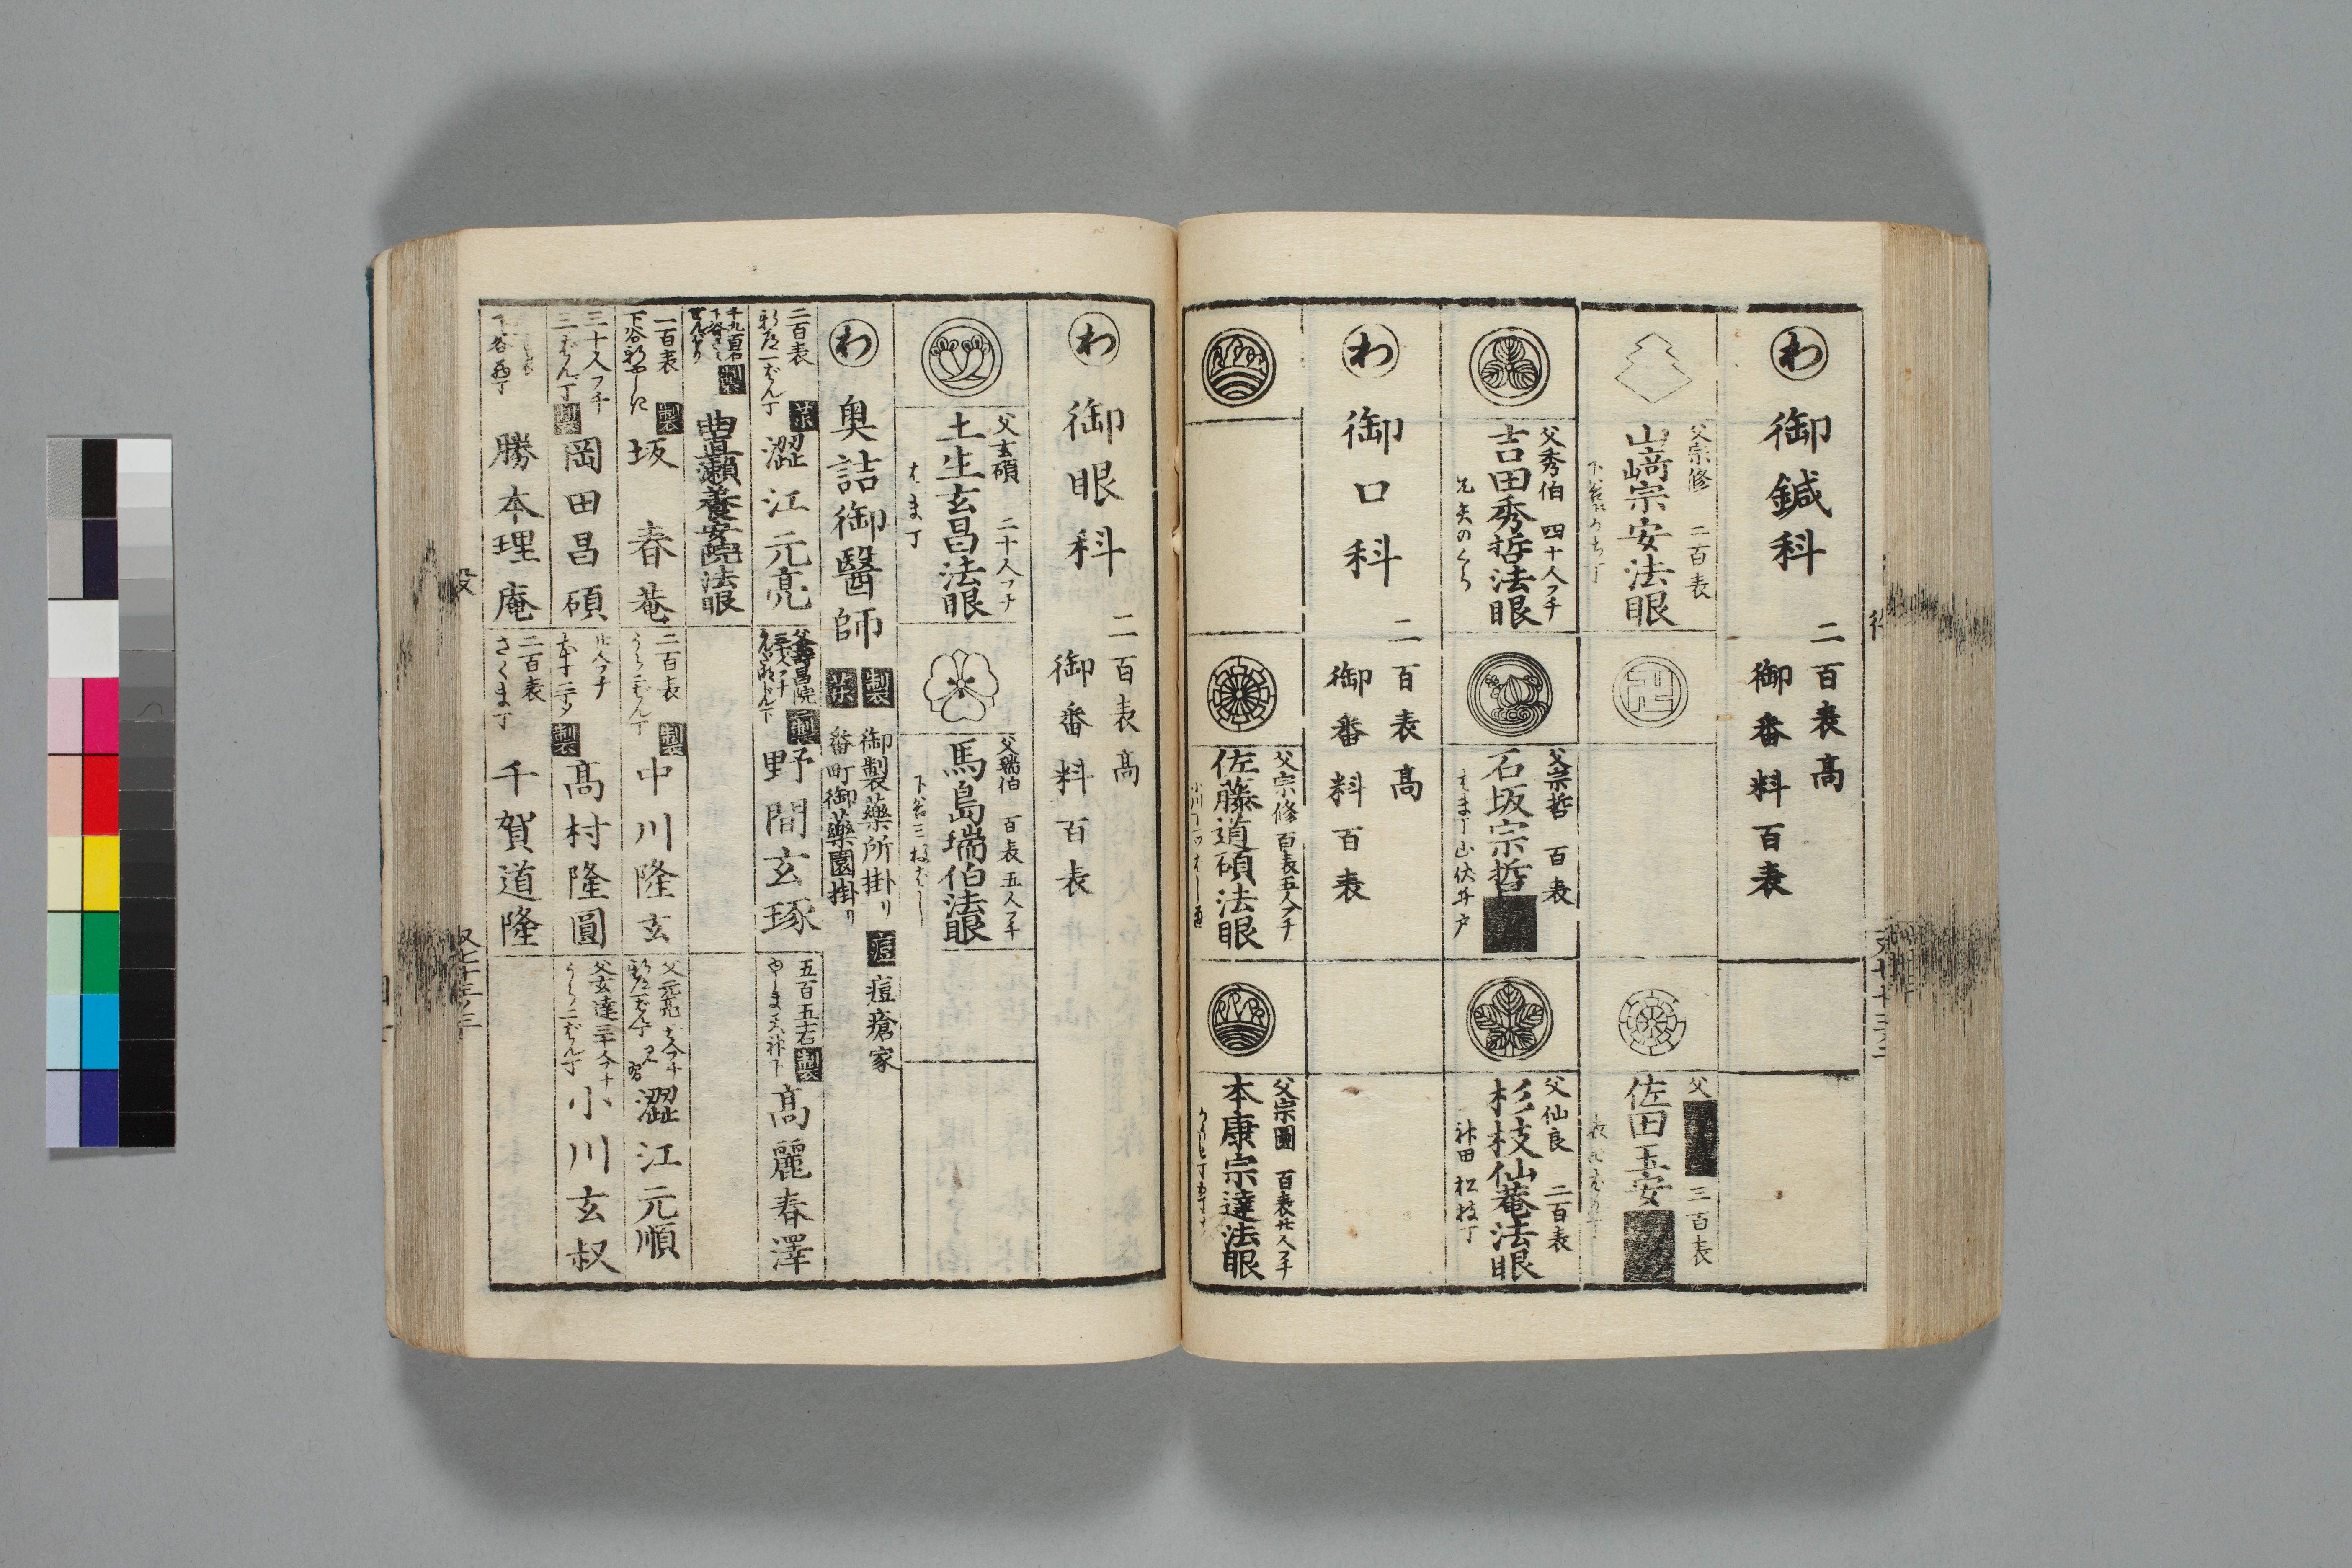 わ 御鍼科 二百表高
御番料百表
父宗修 二百表
山﨑宗安法眼
父 三百表
佐田玉安
父秀伯 四十人フチ
吉田秀哲法眼
元矢のくら
父宗哲 百表
石坂宗哲
山伏井戸
父仙良 二百表
杉枝仙菴法眼
神田 松枝丁
わ 御口科 二百表高
御番料百表
父宗修 百表五人フチ
佐藤道碩法眼
父宗圓 百表廿人フチ
本康宗達法眼
わ 御眼科 二百表高
御番料百表
父玄碩 二十人フチ
土生玄昌法眼
はま丁
父瑞伯 百表五人フチ
馬島瑞伯法眼
わ 奥詰御醫師
製 御製藥所掛リ 痘 痘瘡家
茶 番町御藥園掛リ
二百表
澀江元亮
製 野間玄琢
五百五十石 製
高麗春澤
千九百石
製 曲直瀬養安院法眼
一百表
下谷 製
坂 春菴
二百表
うら二ばん丁 製
中川隆玄
父元亮
澀江元順
三十人フチ
三ばん丁 製
岡田昌碩
廿人フチ
製 髙村隆圓
父玄達 三十人フチ
うら二ばん丁
小川玄叔
勝本理庵
二百表
さくま丁
千賀道隆